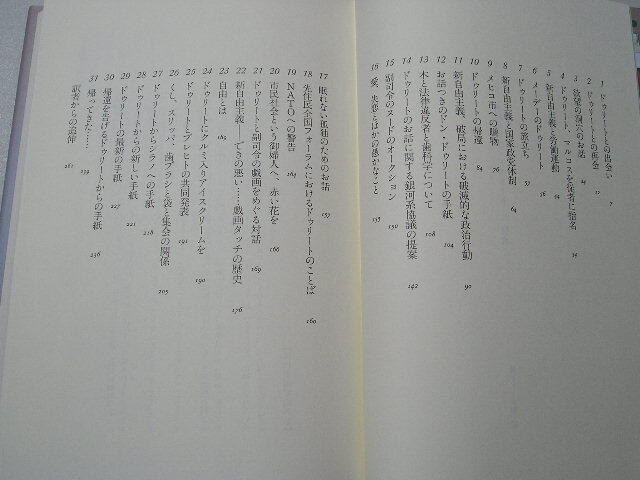 1 ドゥリートとの出会い 7
2 ドゥリートとの再会 17
3 欲望の洞穴のお話
4 ドゥリート、マルコスを従者に指名 34
5 新自由主義と労働運動
6 メーデーのドゥリート
7 ドゥリートの旅立ち 52
8 新自由主義と国家政党体制 64
9 メヒコ市への贈物 76
10 ドゥリートの帰還 84
11 新自由主義、破局における破滅的な政治行動 90
12 お話つきのドン・ドゥリートの手紙 104
13 木と法律違反者と歯科学について 108
14 ドゥリートのお話に関する銀河系協議の提案 142
15 副司令のヌードのオークション 150
16 愛、失恋とばかの愚かなこと 153
17 眠れない孤独のためのお話 157
18 先住民全国フォーラムにおけるドゥリートのことば 160
19 NATOへの警告 164
20 市民社会という御婦人へ、赤い花を 166
21 ドゥリートと副司令の戯画をめぐる対話 169
22 新自由主義――できの悪い……戯画タッチの歴史 176
23 自由とは 189
24 ドゥリートにクルミ入りアイスクリームを 190
25 ドゥリートとブレヒトの共同発表 191
26 くし、スリッパ、歯ブラシと袋と集会の関係 205
27 ドゥリートからシラノへの手紙 218
28 ドゥリートからの新しい手紙 221
29 ドゥリートの最新の手紙 227
30 帰還を告げるドゥリートからの手紙 236
31 帰ってきた…… 239
訳者からの追伸 261